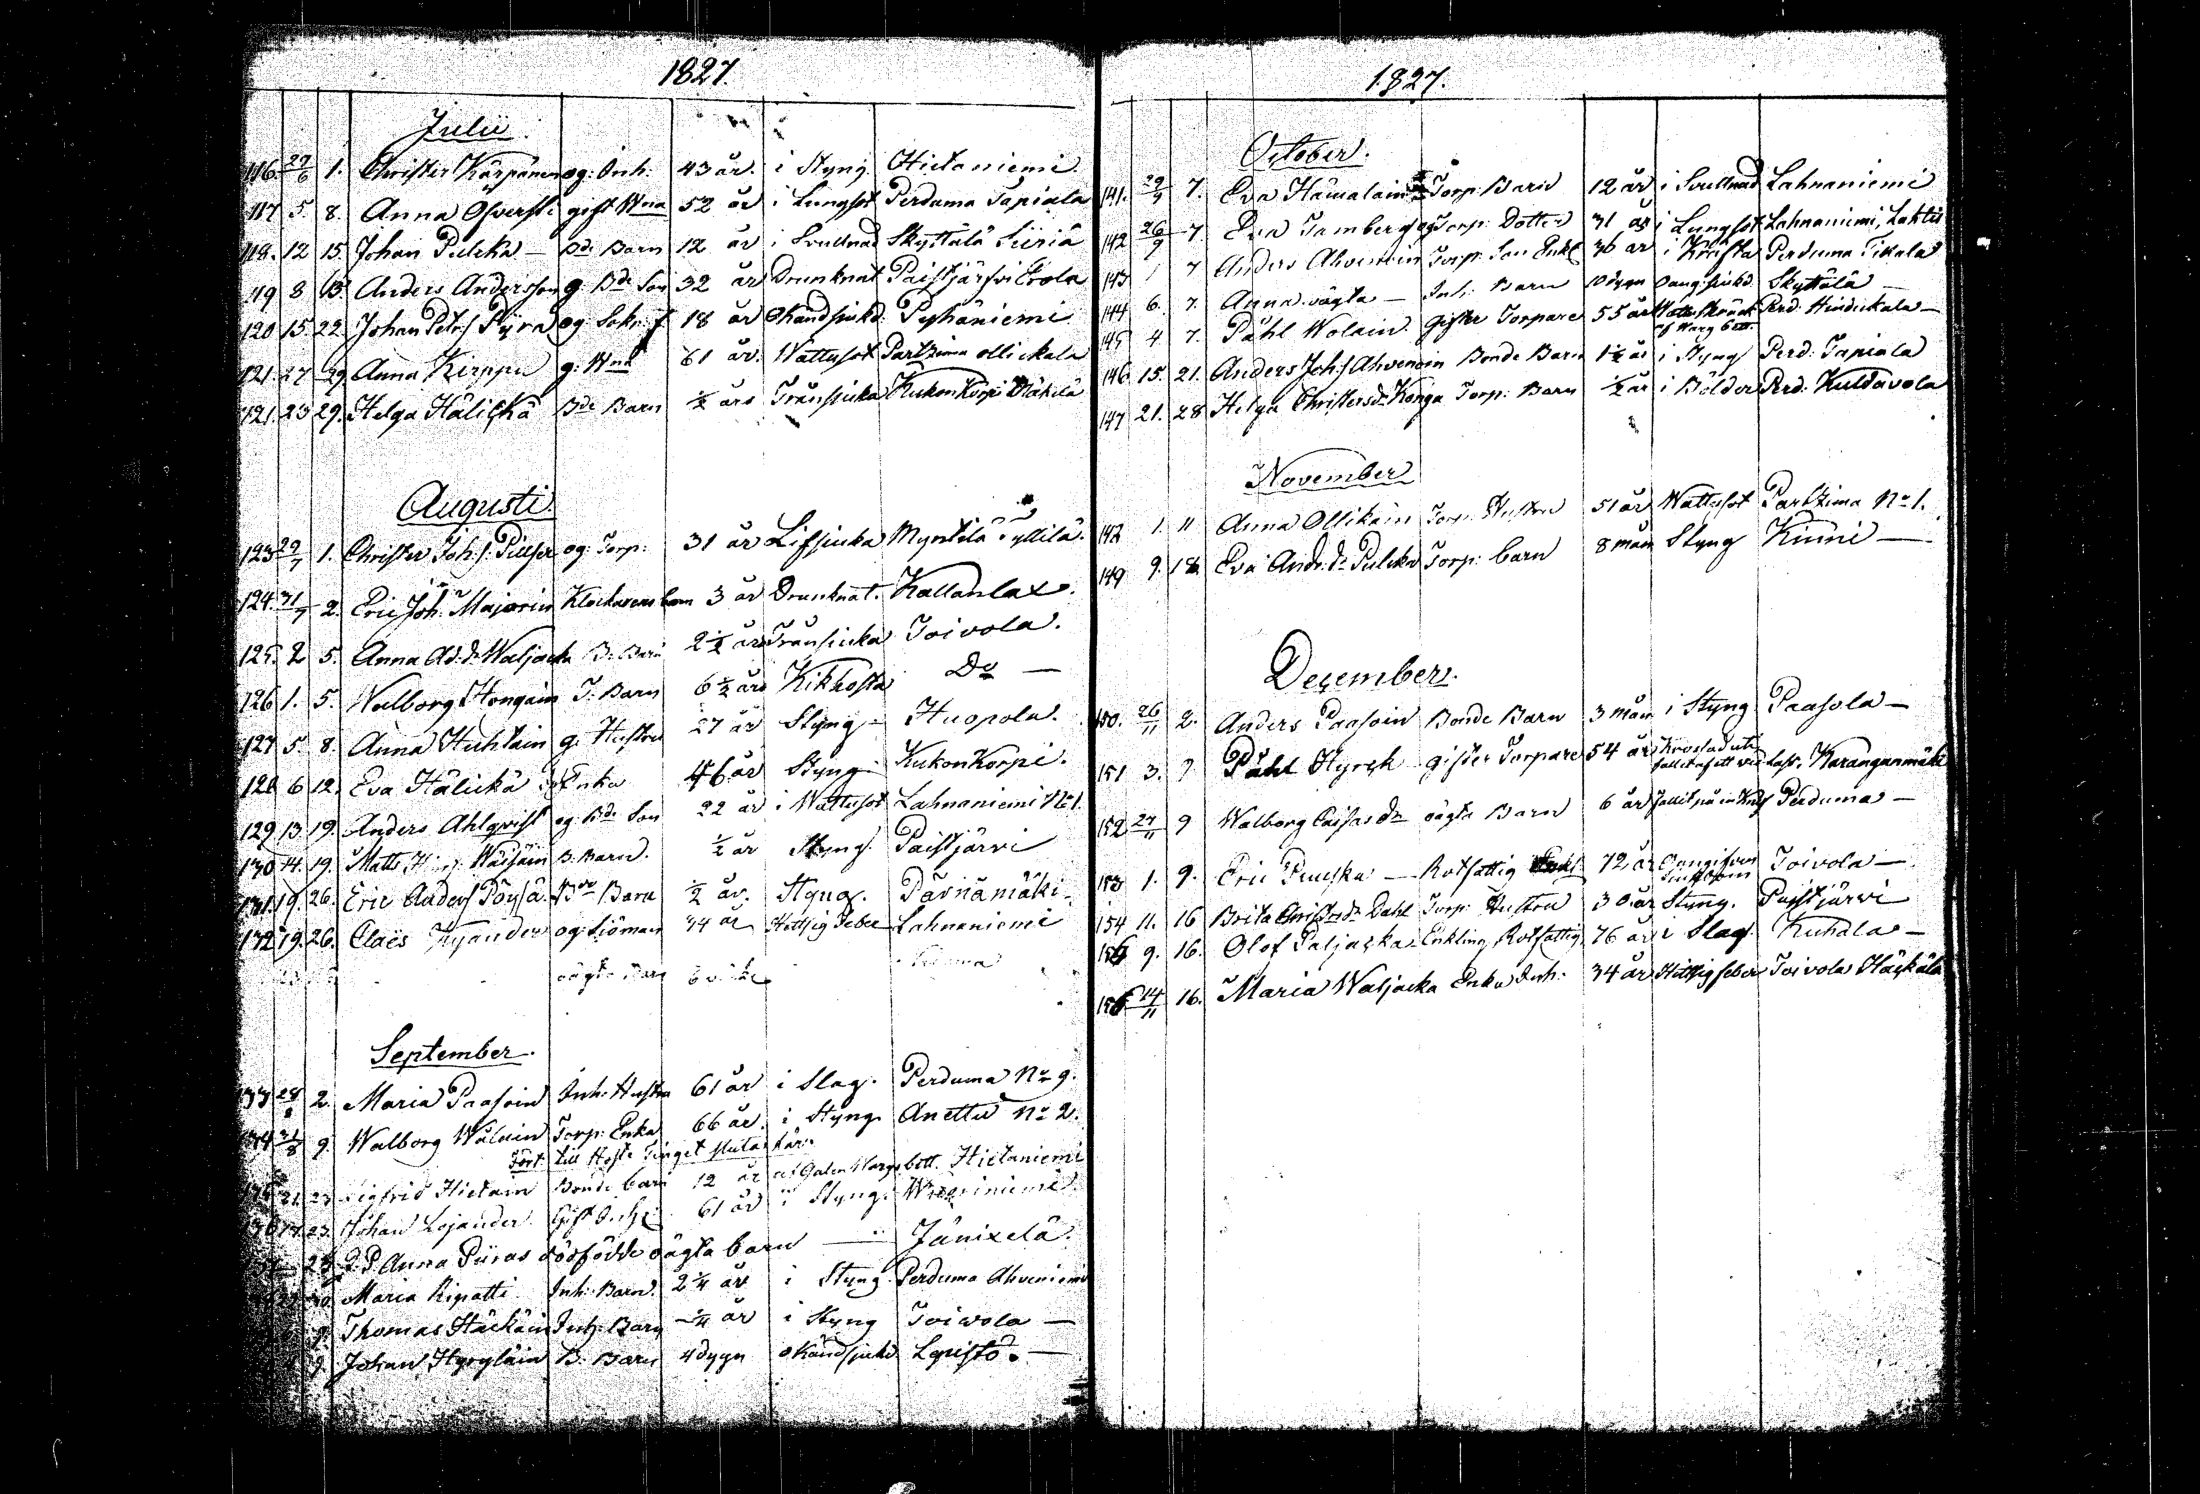 1827.
Julii
116. 27/6 1. Christer Kärpänen og: Inh: 43 år. i Styng Hietaniemi
117 5. 8. Anna Ofverste gift Wna 52 år i Lungsot Perduma Tapiala
118. 12 15. Johan Pulcka — Bde Barn 12 år i Svullnad Skyttälä Siiriä
119 8 15. Anders Andersson g. Bde Son 32 år Drunknat Paistjärfvi Erola
120 15. 22. Johan Petrs Pyra og Sokn: f 18 år Okänd sjukd. Pyhäniemi
121. 27 29 Anna Kirppu g: Wna 61 år. Wattusot Partzima ollickala
121. 23 29. Helga Hälickä Bde Barn ½ års Trånsjuka KukonKorpi
Augusti
123 29/7 1. Christer Joh: s. og: Torp: 31 år Lifsjuka Myntilä
124. 31/7 2. Eric Joh: Majorin Klockarens barn 3 år Drunknat. Kallanlax.
125. 2 5. Anna Ad: dr Waljacka B: Barn 2½ års Trånsjuka Toivola.
126 1. 5. Walborg Hongain T: Barn 6½ års Kikhosta Do —
127 5. 8. Anna Huhtain g: Hustru 27 år Styng — Huopola.
128 6 12. Eva Hälickä Enka 46 år Styng KukonKorpi.
129 13 19. Anders Ahlqvist og Bde Son 22 år i Wattusot Lahnaniemi No 1.
130 14. 19. Matts Wäisäin B: Barn. ½ år Styng. Paistjärvi
131. 19. 26. Eric Anders Pöyjä Bde Barn ½ år. Styng. Pärnämäki
132 19. 26. Claës Kyander og: Siöman 34 år Hettsig Feber Lahnaniemi
oägta Barn
September.
133 28/8 2. Maria Paasoin Inh: Hustru 61 år i Slag. Perduma No 9.
134 31/8 9. Walborg Wälain Torp: Enka 66 år. i Styng. Anettu No 2.
Fört till Höste Tinget slutar här
135 21 23 Sigfrid Hietain Bonde barn 12 år af Galen Wargs bett. Hietaniemi
136 17. 23. Johan Lojander Gift Inh: 61 år i Styng.
23 Q. P. Anna Piiras dödfödde oägta barn — Jänixelä.
30 Maria Ripatti Inh: Barn. 2¼ år i Styng Perduma Ahveniemi
Thomas Häckäin Inh: Barn ¼ år i Styng Toivola —
Johan Hyrylain B: Barn 4 dygn okänd sjukd. Lqvistö. —
1827.
October.
141. 29/9 7. Eva Hämälain Torp: Barn 12 år i Svullnad Lahnaniemi
142 26/9 7 Eva Tamberg og Torp: Dotter 31 år i Lungsot Lahnaniemi, Lahtis
143 1 7 Anders Ahvenain Torp: Son Enkl 36 år i Kräfta Perduma Tikala
144 6. 7. Anna oägta — Inh: Barn 10 dygn Oang: sjukd. Skyttälä —
145 4 7. Påhl Wolain Gifter Torpare 55 år Wattuskräck af Warg bett. Perd. Heiдickala —
146 15. 21. Anders Joh:s Ahvenain Bonde Barn 1½ år i Styng Perd: Tapiala
147 21. 28 Helga Christersdr Konga Torp: Barn ½ år i Bölder Perd. Kuldavola
November
142 1. 11 Anna Ollikain Torp: Hustru 51 år Wattusot Partzima No 1.
149 9. 18. Eva Andr: dr Pulcka Torp: barn 8 mån Styng Kinni —
December.
150. 26/11 2. Anders Paasoin Bonde Barn 3 mån i Styng Paasola —
151 3. 9 Påhl Hyrck gifter Torpare 54 år Karanganmäki
152 27/11 9 Walborg Caisas dr oägta Barn 6 år Perduma —
153 1. 9. Eric — Rotfattig Enkl 72 år Oangifven Sjukdom Toivola —
154 11. 16 Brita Christersdr Dahl Torp: Hustru 30 år Styng. Paistjärvi
155 9. 16. Olof Paljacka Enkling Rotfattig 76 år i Slag Kuhala —
156 14/11 16. Maria Waljacka Enka Inh: 34 år Hettsig feber Toivola Häckälä